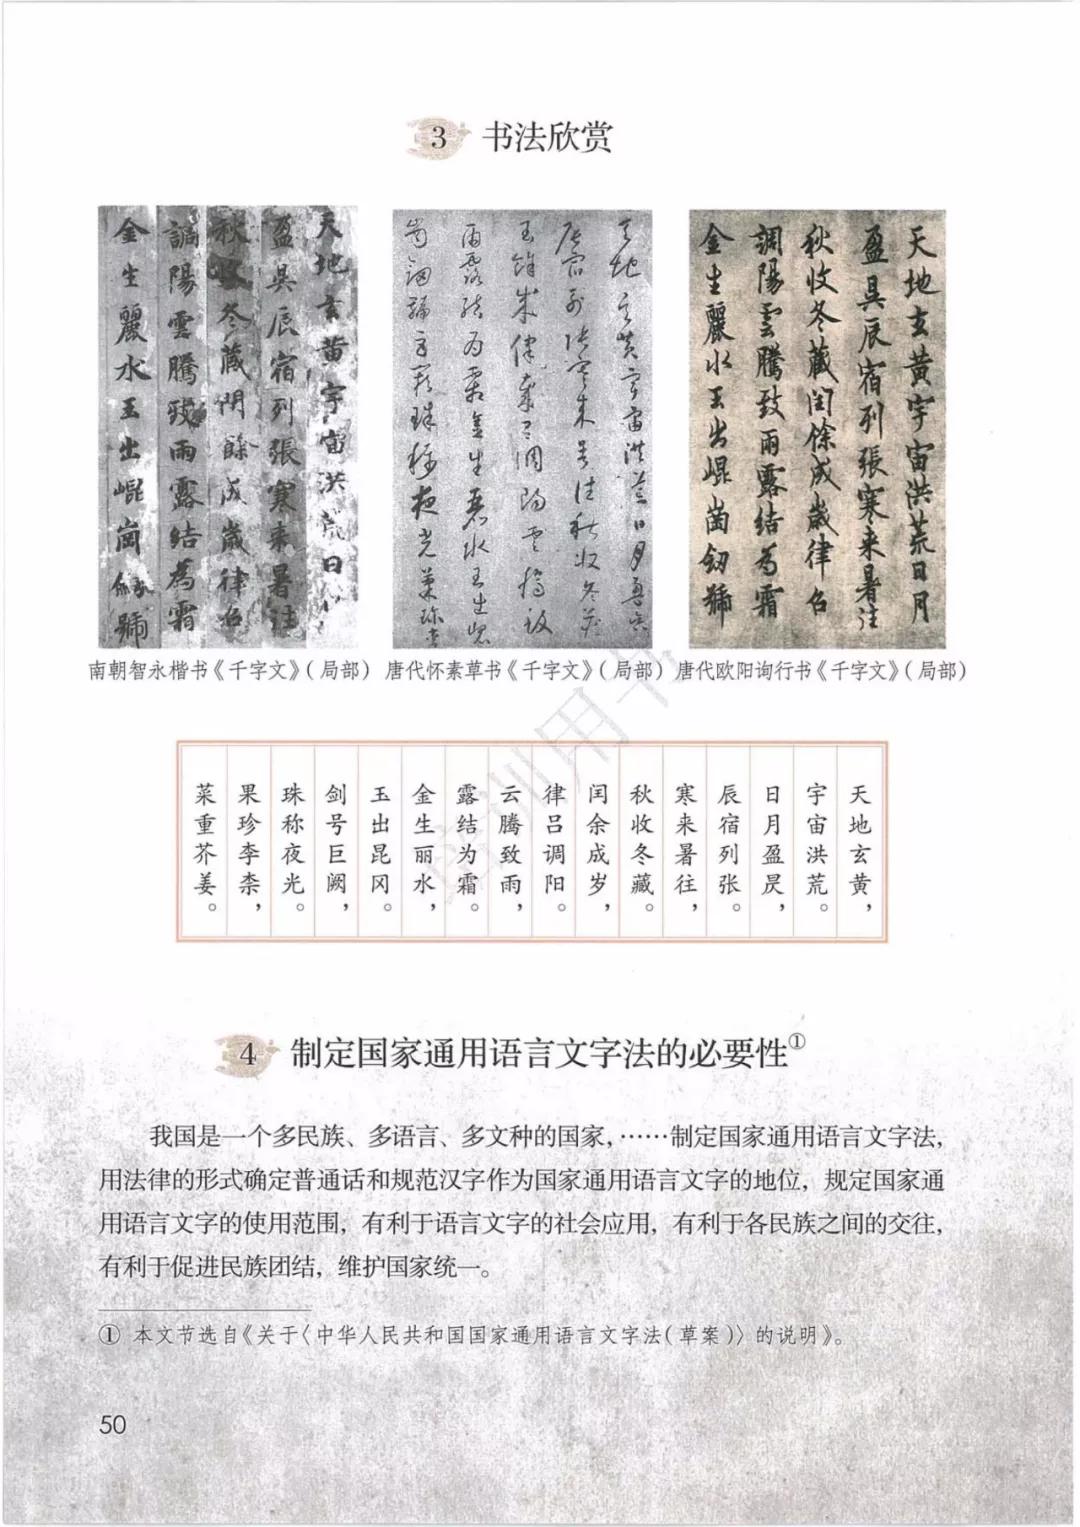 3 书法欣赏
天地玄黄宇宙洪荒日
盈昃辰宿列張寒来暑往
秋收冬藏閏餘成歲律吕
調陽雲騰致雨露結為霜
金生麗水玉出崐崗劒號
天地玄黄宇宙洪荒日月
盈昃辰宿列張寒来暑往
秋收冬藏閏餘成歲律吕
調陽雲騰致雨露結為霜
金生麗水玉出崐崗劒號
南朝智永楷书《千字文》(局部)
唐代怀素草书《千字文》(局部)
唐代欧阳询行书《千字文》(局部)
天地玄黄，
宇宙洪荒。
日月盈昃，
辰宿列张。
寒来暑往，
秋收冬藏。
闰余成岁，
律吕调阳。
云腾致雨，
露结为霜。
金生丽水，
玉出昆冈。
剑号巨阙，
珠称夜光。
果珍李柰，
菜重芥姜。
培训用书
4 制定国家通用语言文字法的必要性①
我国是一个多民族、多语言、多文种的国家，……制定国家通用语言文字法，
用法律的形式确定普通话和规范汉字作为国家通用语言文字的地位，规定国家通
用语言文字的使用范围，有利于语言文字的社会应用，有利于各民族之间的交往，
有利于促进民族团结，维护国家统一。
① 本文节选自《关于〈中华人民共和国国家通用语言文字法(草案)〉的说明》。
50